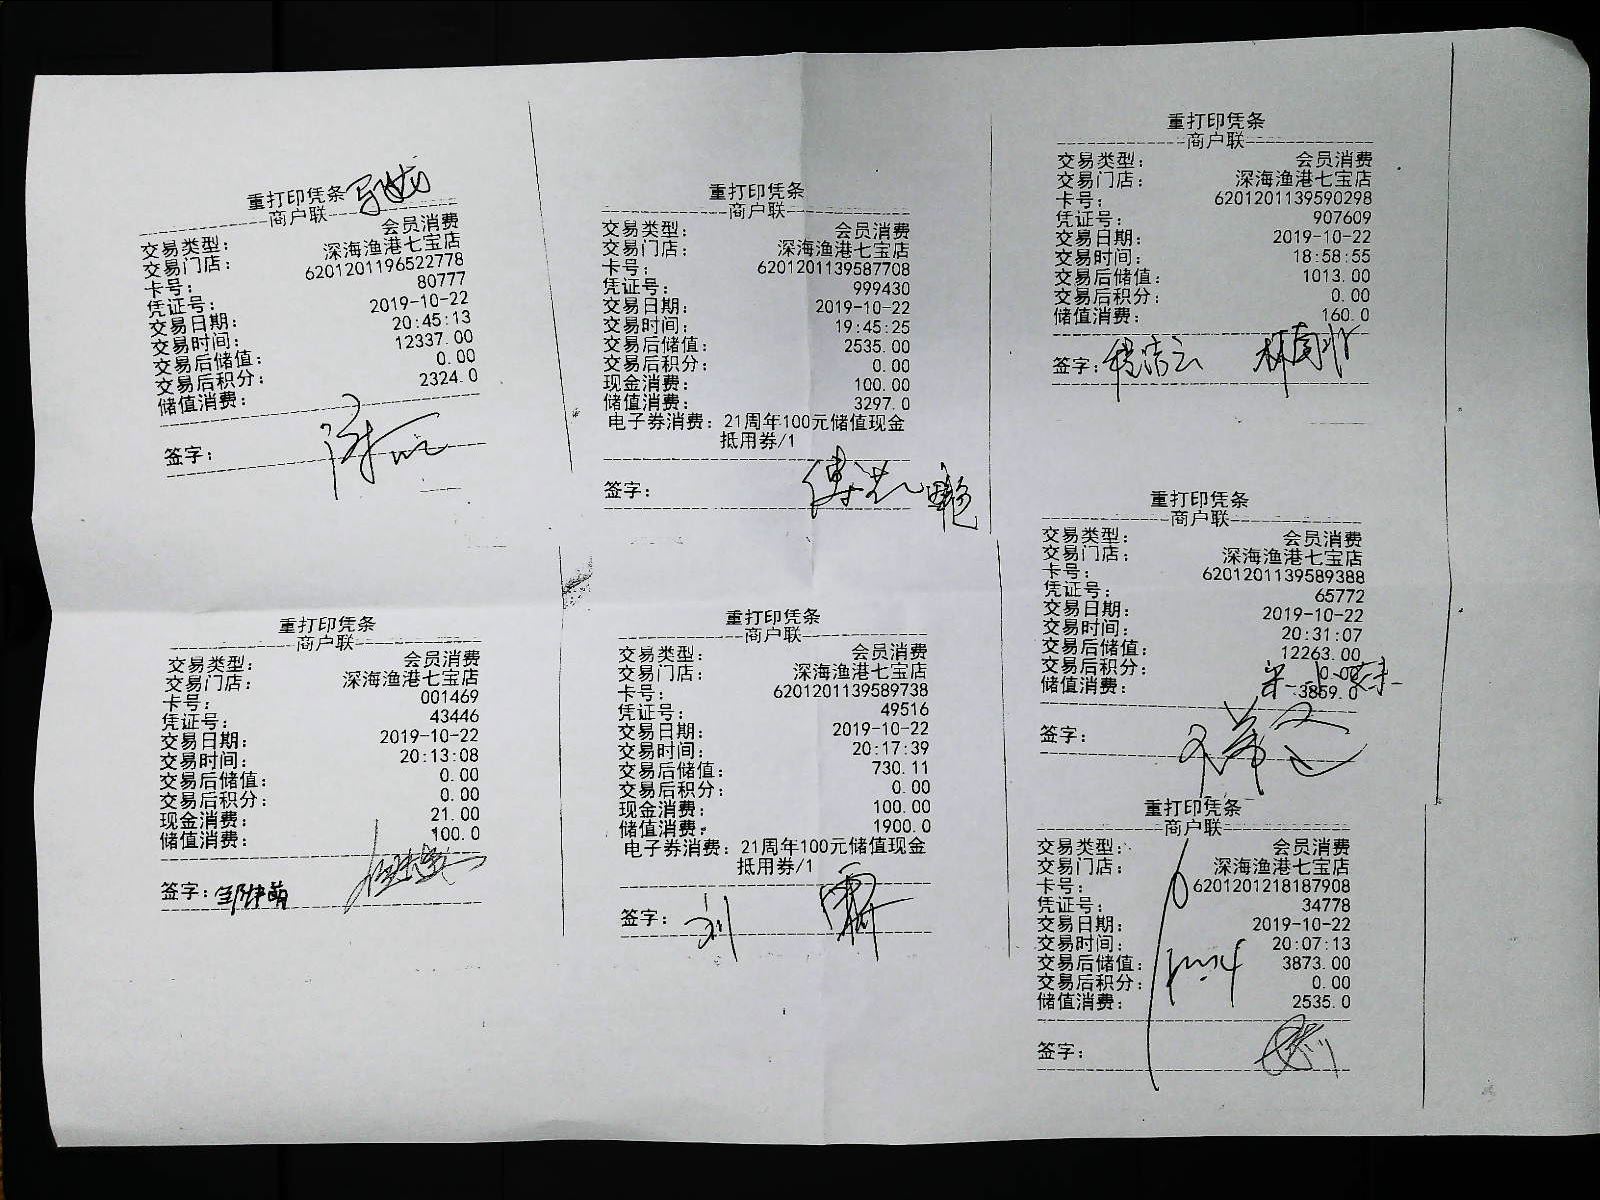 重打印凭条
商户联
交易类型： 会员消费
交易门店： 深海渔港七宝店
卡号： 6201201196522778
凭证号： 80777
交易日期： 2019-10-22
交易时间： 20:45:13
交易后储值： 12337.00
交易后积分： 0.00
储值消费： 2324.0
签字：
重打印凭条
商户联
交易类型： 会员消费
交易门店： 深海渔港七宝店
卡号： 6201201139587708
凭证号： 999430
交易日期： 2019-10-22
交易时间： 19:45:25
交易后储值： 2535.00
交易后积分： 0.00
现金消费： 100.00
储值消费： 3297.0
电子券消费：21周年100元储值现金
抵用券/1
签字：
重打印凭条
商户联
交易类型： 会员消费
交易门店： 深海渔港七宝店
卡号： 6201201139590298
凭证号： 907609
交易日期： 2019-10-22
交易时间： 18:58:55
交易后储值： 1013.00
交易后积分： 0.00
储值消费： 160.0
签字：
重打印凭条
商户联
交易类型： 会员消费
交易门店： 深海渔港七宝店
卡号： 001469
凭证号： 43446
交易日期： 2019-10-22
交易时间： 20:13:08
交易后储值： 0.00
交易后积分： 0.00
现金消费： 21.00
储值消费： 100.0
签字：
重打印凭条
商户联
交易类型： 会员消费
交易门店： 深海渔港七宝店
卡号： 6201201139589738
凭证号： 49516
交易日期： 2019-10-22
交易时间： 20:17:39
交易后储值： 730.11
交易后积分： 0.00
现金消费： 100.00
储值消费： 1900.0
电子券消费：21周年100元储值现金
抵用券/1
签字： 刘
重打印凭条
商户联
交易类型： 会员消费
交易门店： 深海渔港七宝店
卡号： 6201201139589388
凭证号： 65772
交易日期： 2019-10-22
交易时间： 20:31:07
交易后储值： 12263.00
交易后积分： 0.00
储值消费： 3859.0
签字：
重打印凭条
商户联
交易类型： 会员消费
交易门店： 深海渔港七宝店
卡号： 6201201218187908
凭证号： 34778
交易日期： 2019-10-22
交易时间： 20:07:13
交易后储值： 3873.00
交易后积分： 0.00
储值消费： 2535.0
签字：